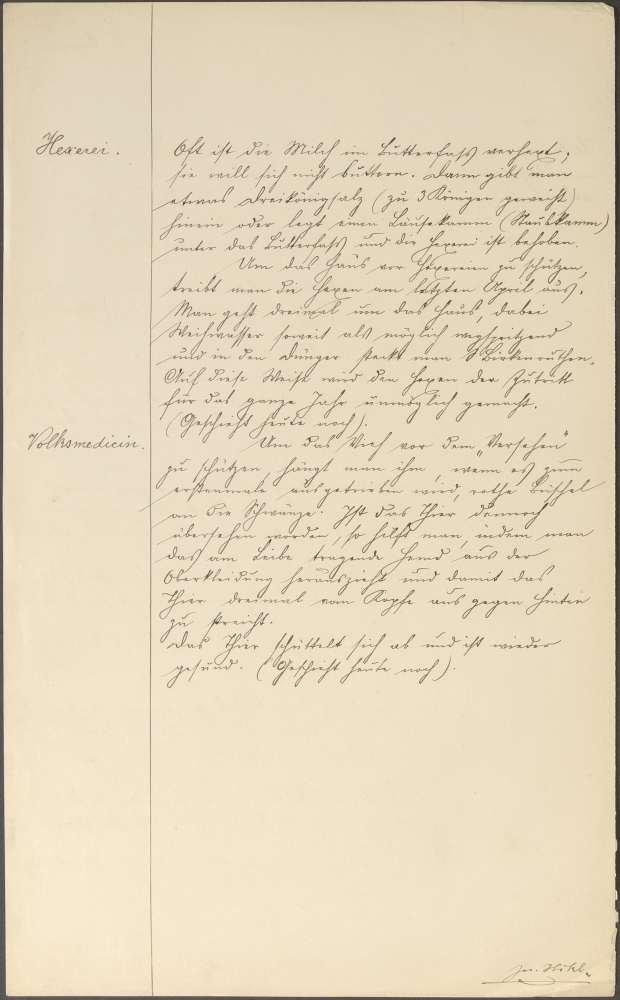 Hexerei.
Oft ist die Milch im Butterfass verhext;
sie will sich nicht buttern. Dann gibt man
etwas Dreikönigsalz (zu 3 Königen geweiht)
hinein oder legt einen Läusekamm (Staubkamm)
unter das Butterfass und die Hexerei ist behoben.
Um das Haus vor Hexereien zu schützen,
treibt man die Hexen am letzten April aus.
Man geht dreimal um das Haus, dabei
Weihwasser soweit als möglich wegspritzend
und in den Dünger steckt man Birkenruthen.
Auf diese Weise wird den Hexen der Zutritt
für das ganze Jahr unmöglich gemacht.
(Geschieht heute noch).
Volksmedicin.
Um das Vieh vor dem „Versehen"
zu schützen, hängt man ihm, wenn es zum
erstenmale ausgetrieben wird, rothe Büschel
an die Schwänze. Ist das Thier dennoch
übersehen worden, so hilft man, indem man
das am Leibe tragende Hemd aus der
Oberkleidung herauszieht und damit das
Thier dreimal vom Kopfe aus gegen hinten
zu streicht.
Das Thier schüttelt sich ab und ist wieder
gesund. (Geschieht heute noch).